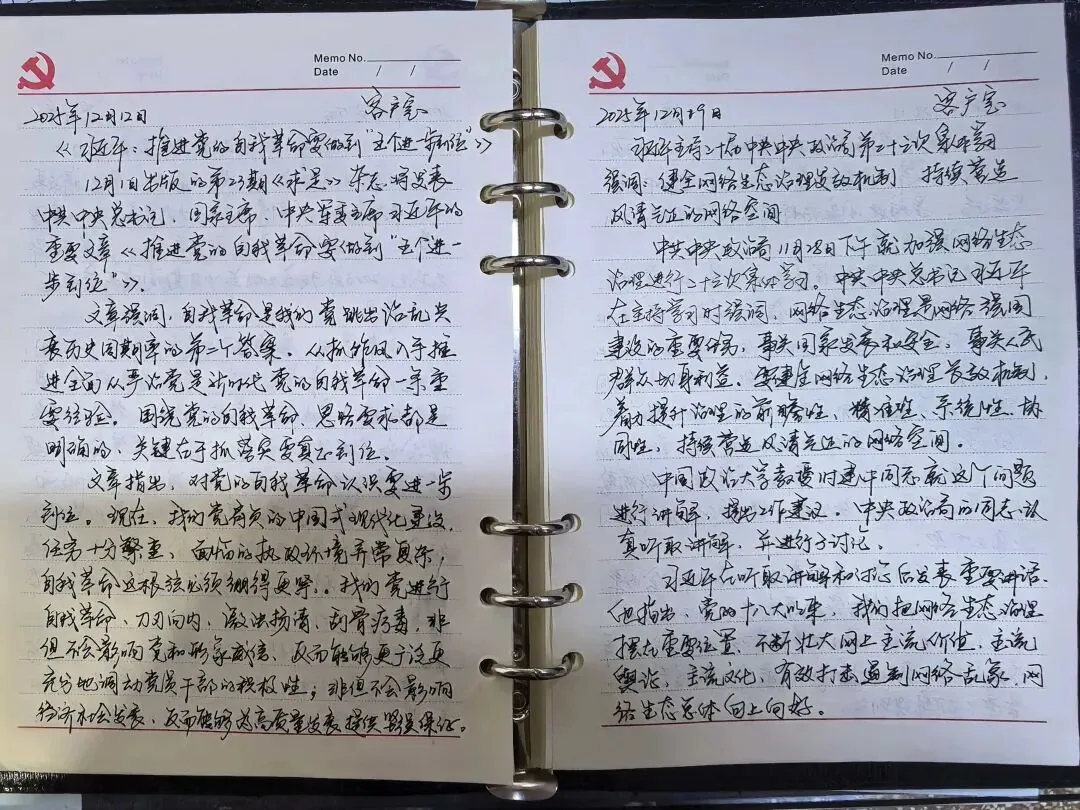 Memo No.
Date / /
2025年12月12日 客户室
《习近平：推进党的自我革命要做到“五个进一步到位”》
12月1日出版的第23期《求是》杂志将发表
中共中央总书记、国家主席、中央军委主席习近平的
重要文章《推进党的自我革命要做到“五个进一
步到位”》。
文章强调，自我革命是我们党跳出治乱兴
衰历史周期率的第二个答案。从抓作风入手推
进全面从严治党是新时代党的自我革命一条重
要经验。围绕党的自我革命，思路要求都是
明确的，关键在于抓落实要真正到位。
文章指出，对党的自我革命认识要进一步
到位。现在，我们党肩负的中国式现代化建设
任务十分繁重、面临的执政环境异常复杂，
自我革命这根弦必须绷得更紧。我们党进行
自我革命、刀刃向内、激浊扬清、刮骨疗毒，非
但不会影响党和形象威信，反而能够更广泛更
充分地调动党员干部的积极性；非但不会影响
经济社会发展，反而能够为高质量发展提供坚强保证。
Memo No.
Date / /
2025年12月19日 客户室
习近平主持二十届中央中央政治局第二十三次集体学习
强调：健全网络生态治理长效机制 持续营造
风清气正的网络空间
中共中央政治局11月28日下午就加强网络生态
治理进行二十三次集体学习。中共中央总书记习近平
在主持学习时强调，网络生态治理是网络强国
建设的重要任务，事关国家发展和安全，事关人民
群众切身利益。要健全网络生态治理长效机制，
着力提升治理的前瞻性、精准性、系统性、协
同性，持续营造风清气正的网络空间。
中国政法大学教授时建中同志就这个问题
进行讲解，提出工作建议。中央政治局的同志认
真听取讲解，并进行了讨论。
习近平在听取讲解和讨论后发表重要讲话。
他指出，党的十八大以来，我们把网络生态治理
摆在重要位置，不断壮大网上主流价值、主流
舆论、主流文化，有效打击遏制网络乱象，网
络生态总体向上向好。